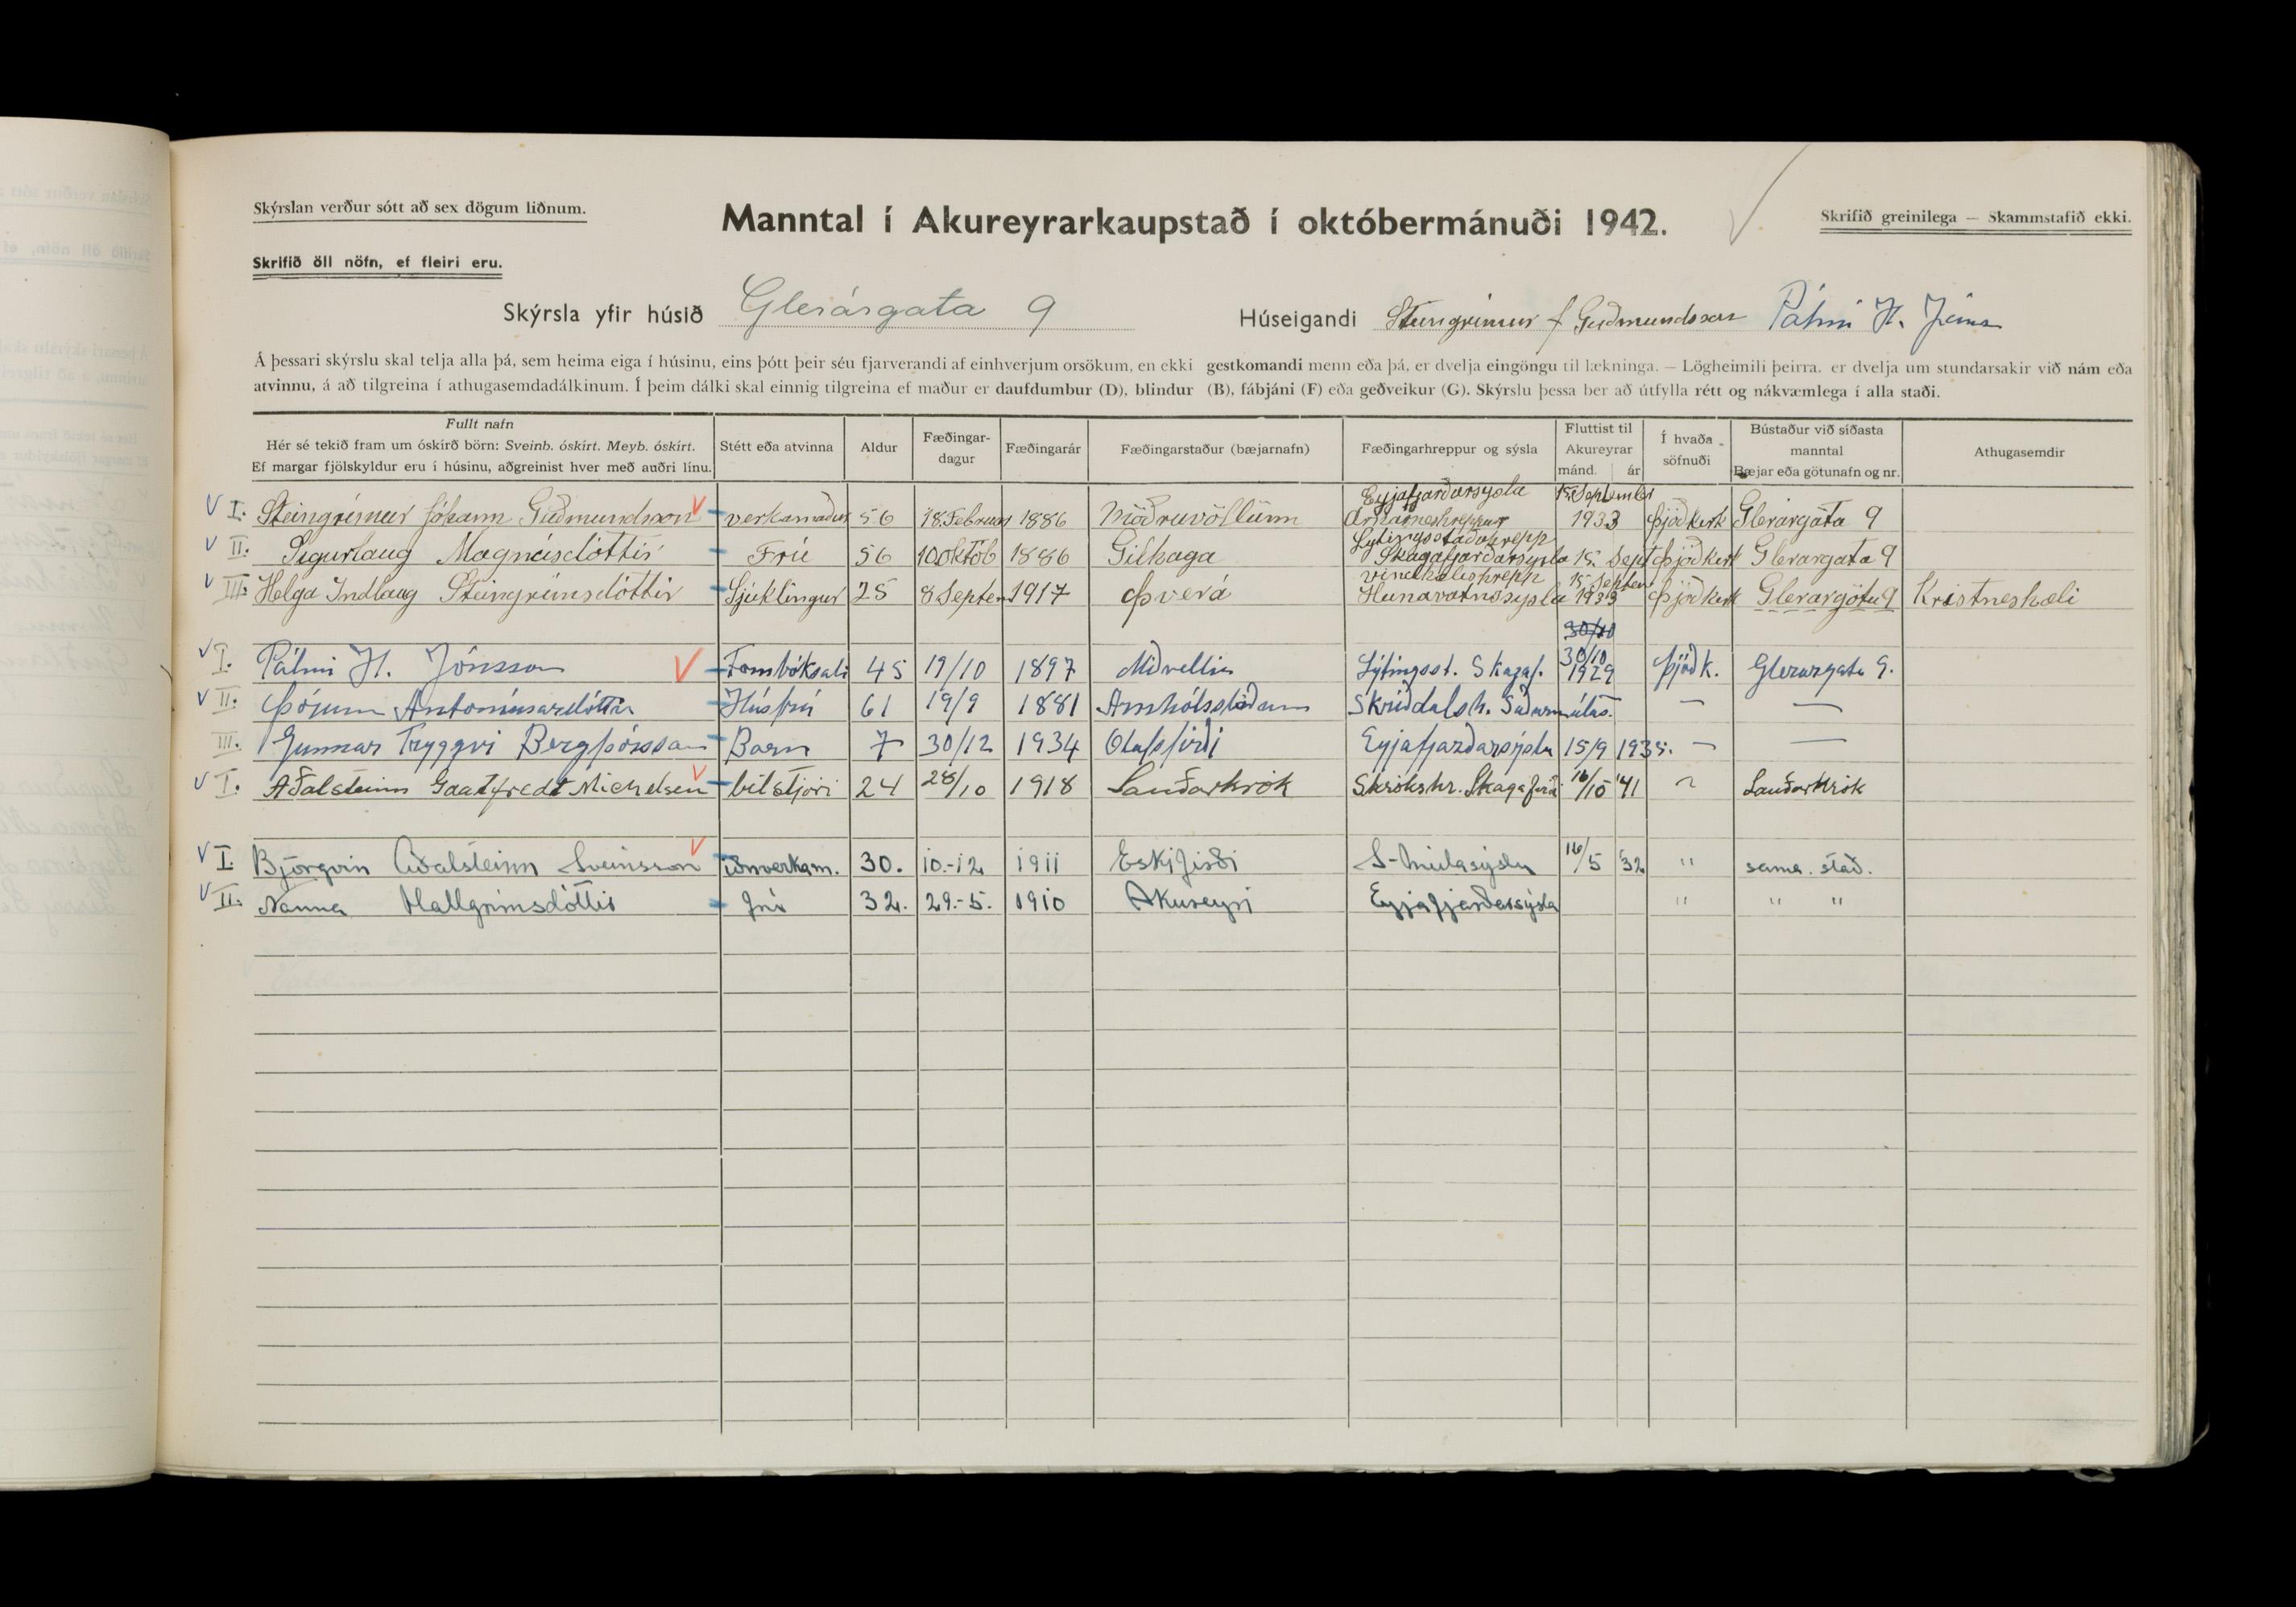 Skýrslan verður sótt að sex dögum liðnum.
Manntal í Akureyrarkaupstað í októbermánuði 1942.
Skrifið greinilega — Skammstafið ekki.
Skrifið öll nöfn, ef fleiri eru.
Skýrsla yfir húsið Glerárgata 9 Húseigandi Steingrímur J Guðmundsson Pálmi H. Jóns
Á þessari skýrslu skal telja alla þá, sem heima eiga í húsinu, eins þótt þeir séu fjarverandi af einhverjum orsökum, en ekki gestkomandi menn eða þá, er dvelja eingöngu til lækninga. — Lögheimili þeirra, er dvelja um stundarsakir við nám eða
atvinnu, á að tilgreina í athugasemdadálkinum. Í þeim dálki skal einnig tilgreina ef maður er daufdumbur (D), blindur (B), fábjáni (F) eða geðveikur (G). Skýrslu þessa ber að útfylla rétt og nákvæmlega í alla staði.
Fullt nafn
Hér sé tekið fram um óskírð börn: Sveinb. óskírt. Meyb. óskírt.
Ef margar fjölskyldur eru í húsinu, aðgreinist hver með auðri línu.
Stétt eða atvinna
Aldur
Fæðingar-
dagur
Fæðingarár
Fæðingarstaður (bæjarnafn)
Fæðingarhreppur og sýsla
Fluttist til
Akureyrar
mánd. ár
Í hvaða
söfnuði
Bústaður við síðasta
manntal
Bæjar eða götunafn og nr.
Athugasemdir
Eyjafjarðarsysla 15. September
I. Steingrímur Jóhann Guðmundsson verkamaður 56 18 Februar 1886 Möðruvöllum Arnarneshreppur 1933 Þjóðkirk Glerárgata 9
Lytingsstaðahrepp
II. Sigurlaug Magnúsdóttir Frú 56 10 Októb 1886 Gilhaga Skagafjarðarsysla 15. Sept Þjóðkirk Glerargata 9
Vindhælishrepp 15. Septem
III. Helga Indlaug Steingrímsdóttir Sjúklingur 25 8 Septem 1917 Þverá Hunavatnssysla 1933 Þjóðkirk Glerargötu 9 Kristneshæli
30/10
30/10
I. Pálmi H. Jónsson Fornbóksali 45 19/10 1897 Miðvellir Lýtingsst. Skagaf. 1929 Þjóðk. Glerargata 9.
II. Þórunn Antoníusardóttir Húsfrú 61 19/9 1881 Arnhólsstöðum Skriðdalsh. Suðurmúlas. — —
III. Gunnar Tryggvi Bergþórsson Barn 7 30/12 1934 Olafsfirði Eyjafjarðarsýsla 15/9 1935. — —
I. Aðalsteinn Gaatfredt Michelsen bílstjóri 24 28/10 1918 Sauðarkrók Skrókshr. Skagafirði 16/10 '41 ~ Sauðarkrók
I. Björgvin Aðalsteinn Sveinsson iðnverkam. 30. 10.-12 1911 Eskifirði S-Múlasýslu 16/5 '32 " sama. stað.
II. Nanna Hallgrímsdóttir frú 32. 29.-5. 1910 Akureyri Eyjafjarðarsýsla " " "